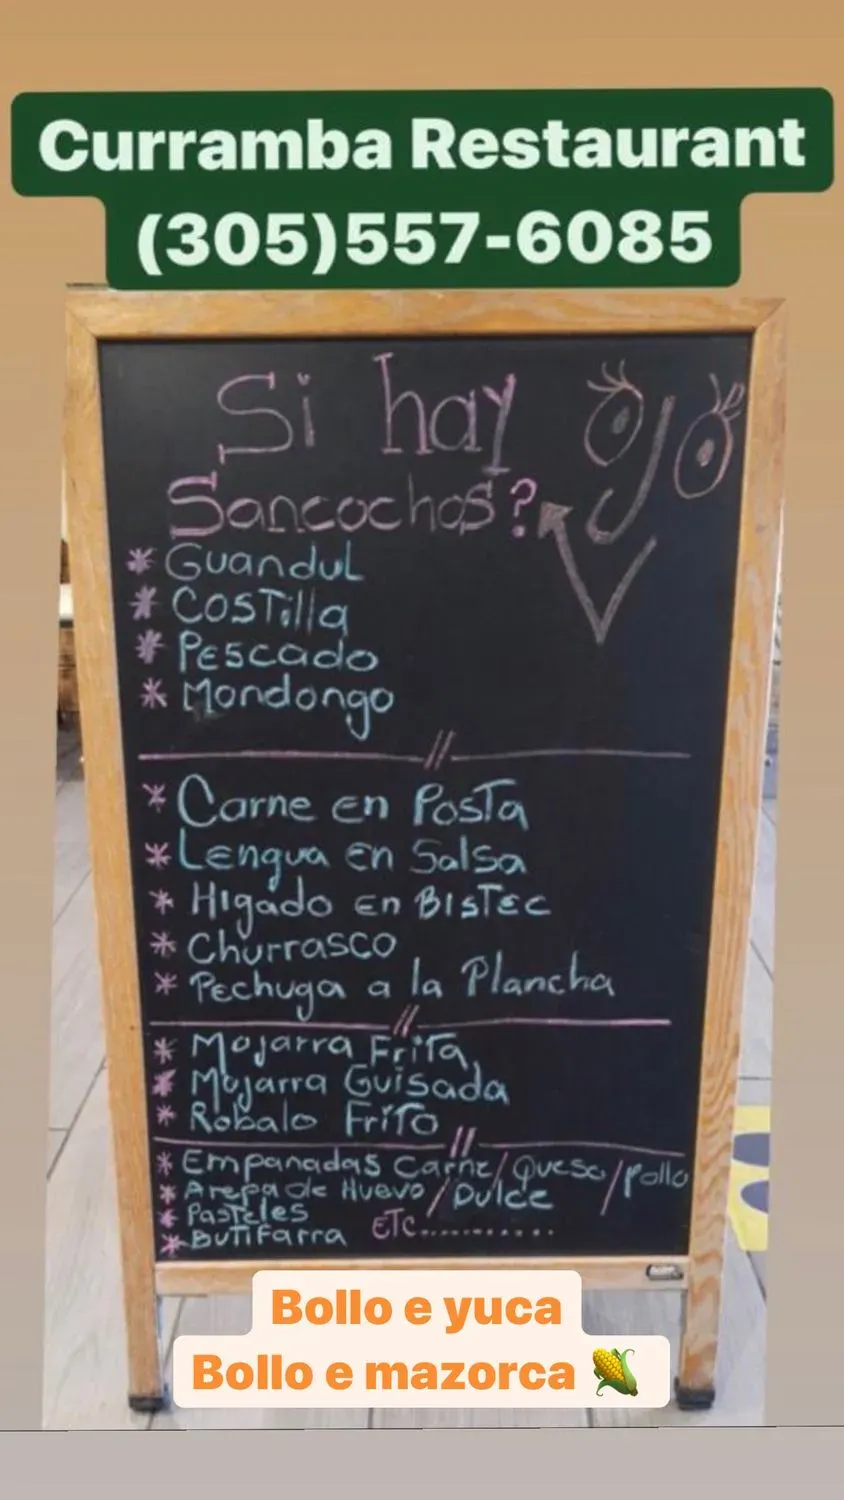 Curramba Restaurant
(305)557-6085
Si hay
Sancochos?
* Guandul
* Costilla
* Pescado
* Mondongo
* Carne en Posta
* Lengua en Salsa
* Higado en Bistec
* Churrasco
* Pechuga a la Plancha
* Mojarra Frita
* Mojarra Guisada
* Robalo Frito
* Empanadas Carne/Queso/Pollo
* Arepa de Huevo/Dulce
* Pasteles
* Butifarra ETC..........
Bollo e yuca
Bollo e mazorca 🌽